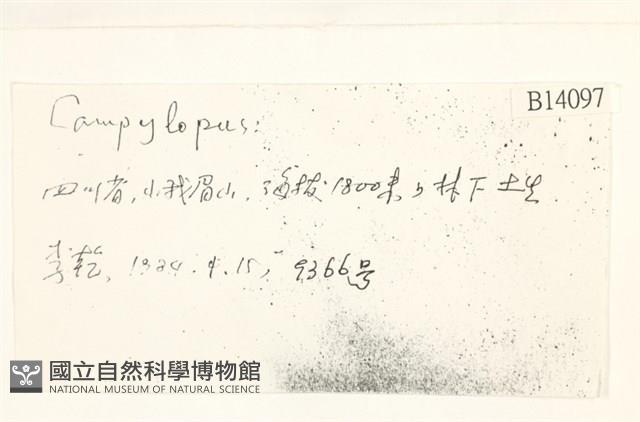 B14097
Campylopus:
四川省,小我眉山,海拔1800米,林下土生
李乾, 1984.9.15, 9366号
國立自然科學博物館
NATIONAL MUSEUM OF NATURAL SCIENCE